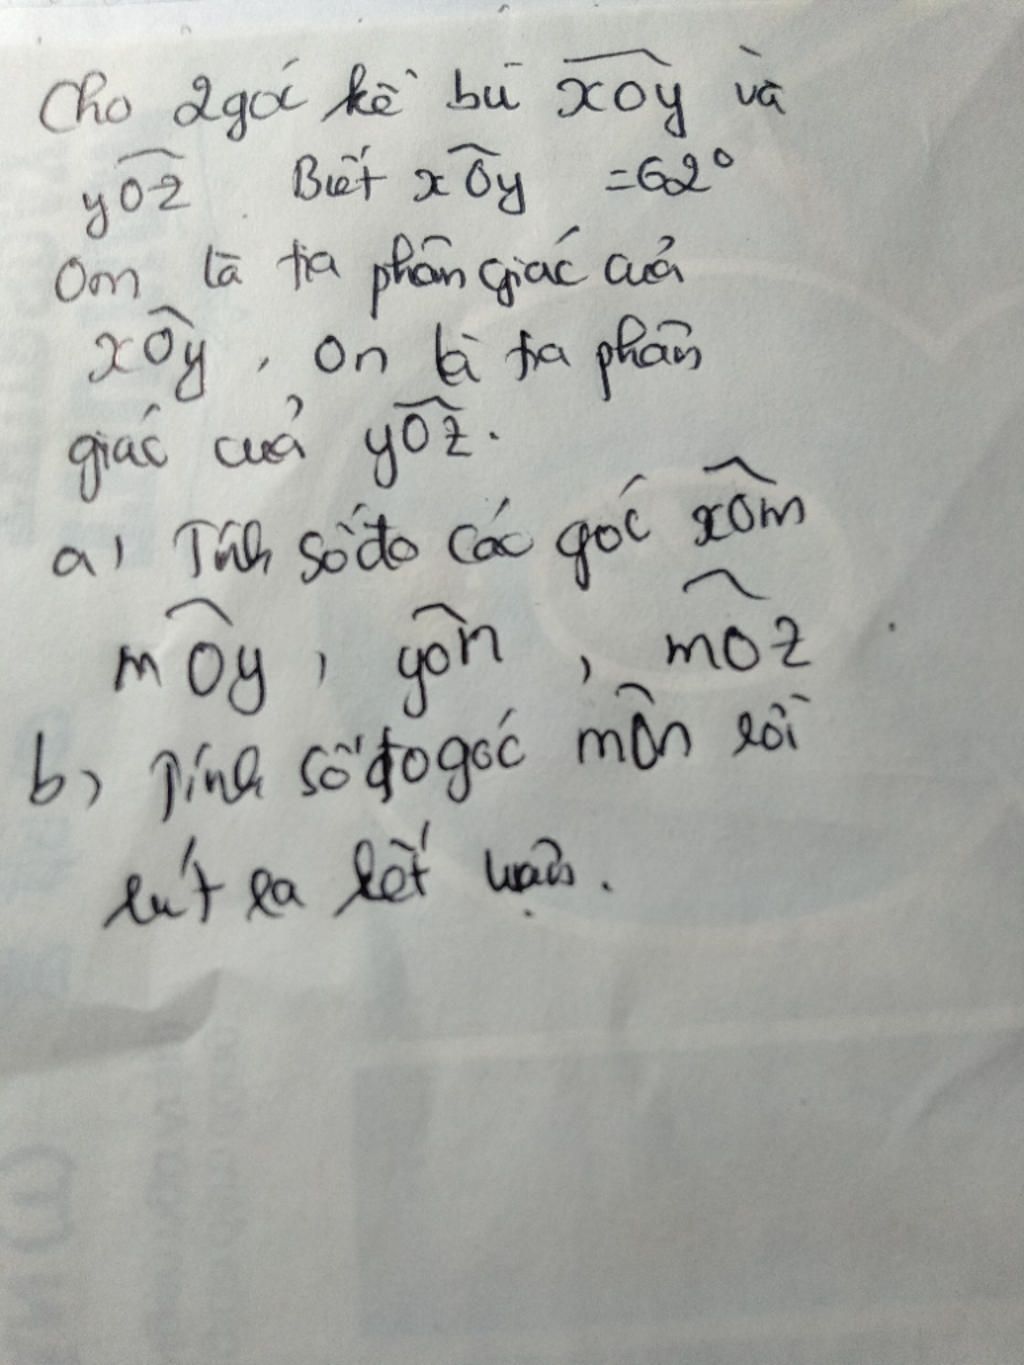 Cho 2 góc kề bù xOy và
yOz. Biết xOy = 62°
Om là tia phân giác của
xOy, On là tia phân
giác của yOz.
a, Tính số đo các góc xOm
mOy, yOn, mOz
b, Tính số đo góc mOn rồi
rút ra kết luận.